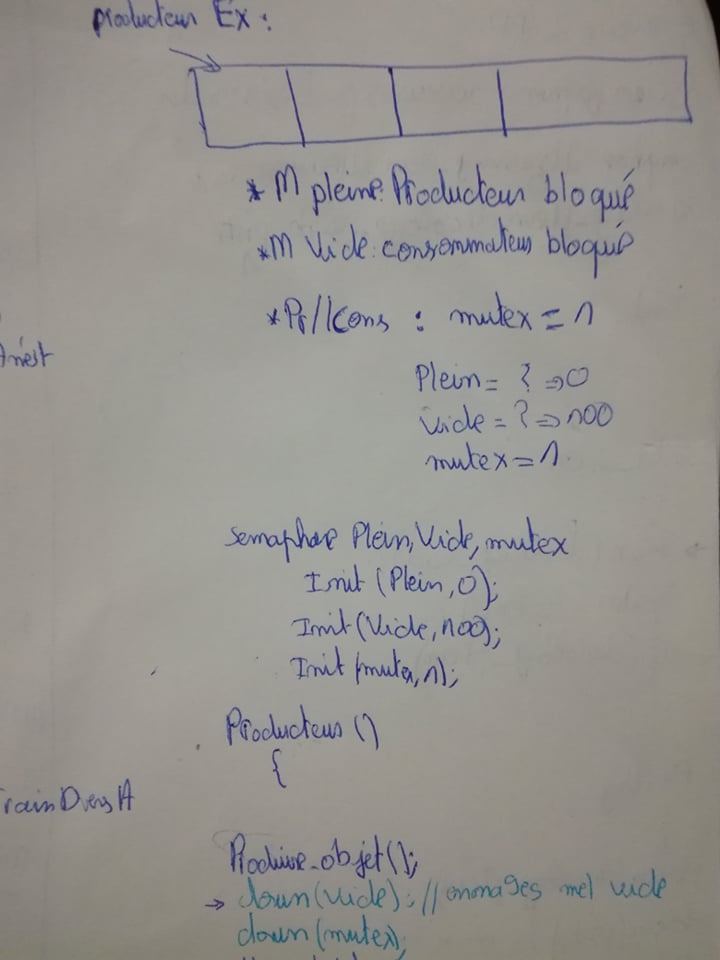 producteur Ex :
* M pleine: Producteur bloqué
* M Vide: consommateur bloqué
* Pr//Cons : mutex = 1
Plein = ? => 0
vide = ? => 100
mutex = 1
semaphore Plein, Vide, mutex
Init (Plein, 0);
Init (Vide, 100);
Init (mutex, 1);
Producteur ()
{
Train D vers A
Produire_objet();
→ down(vide); // mel vide
down(mutex);